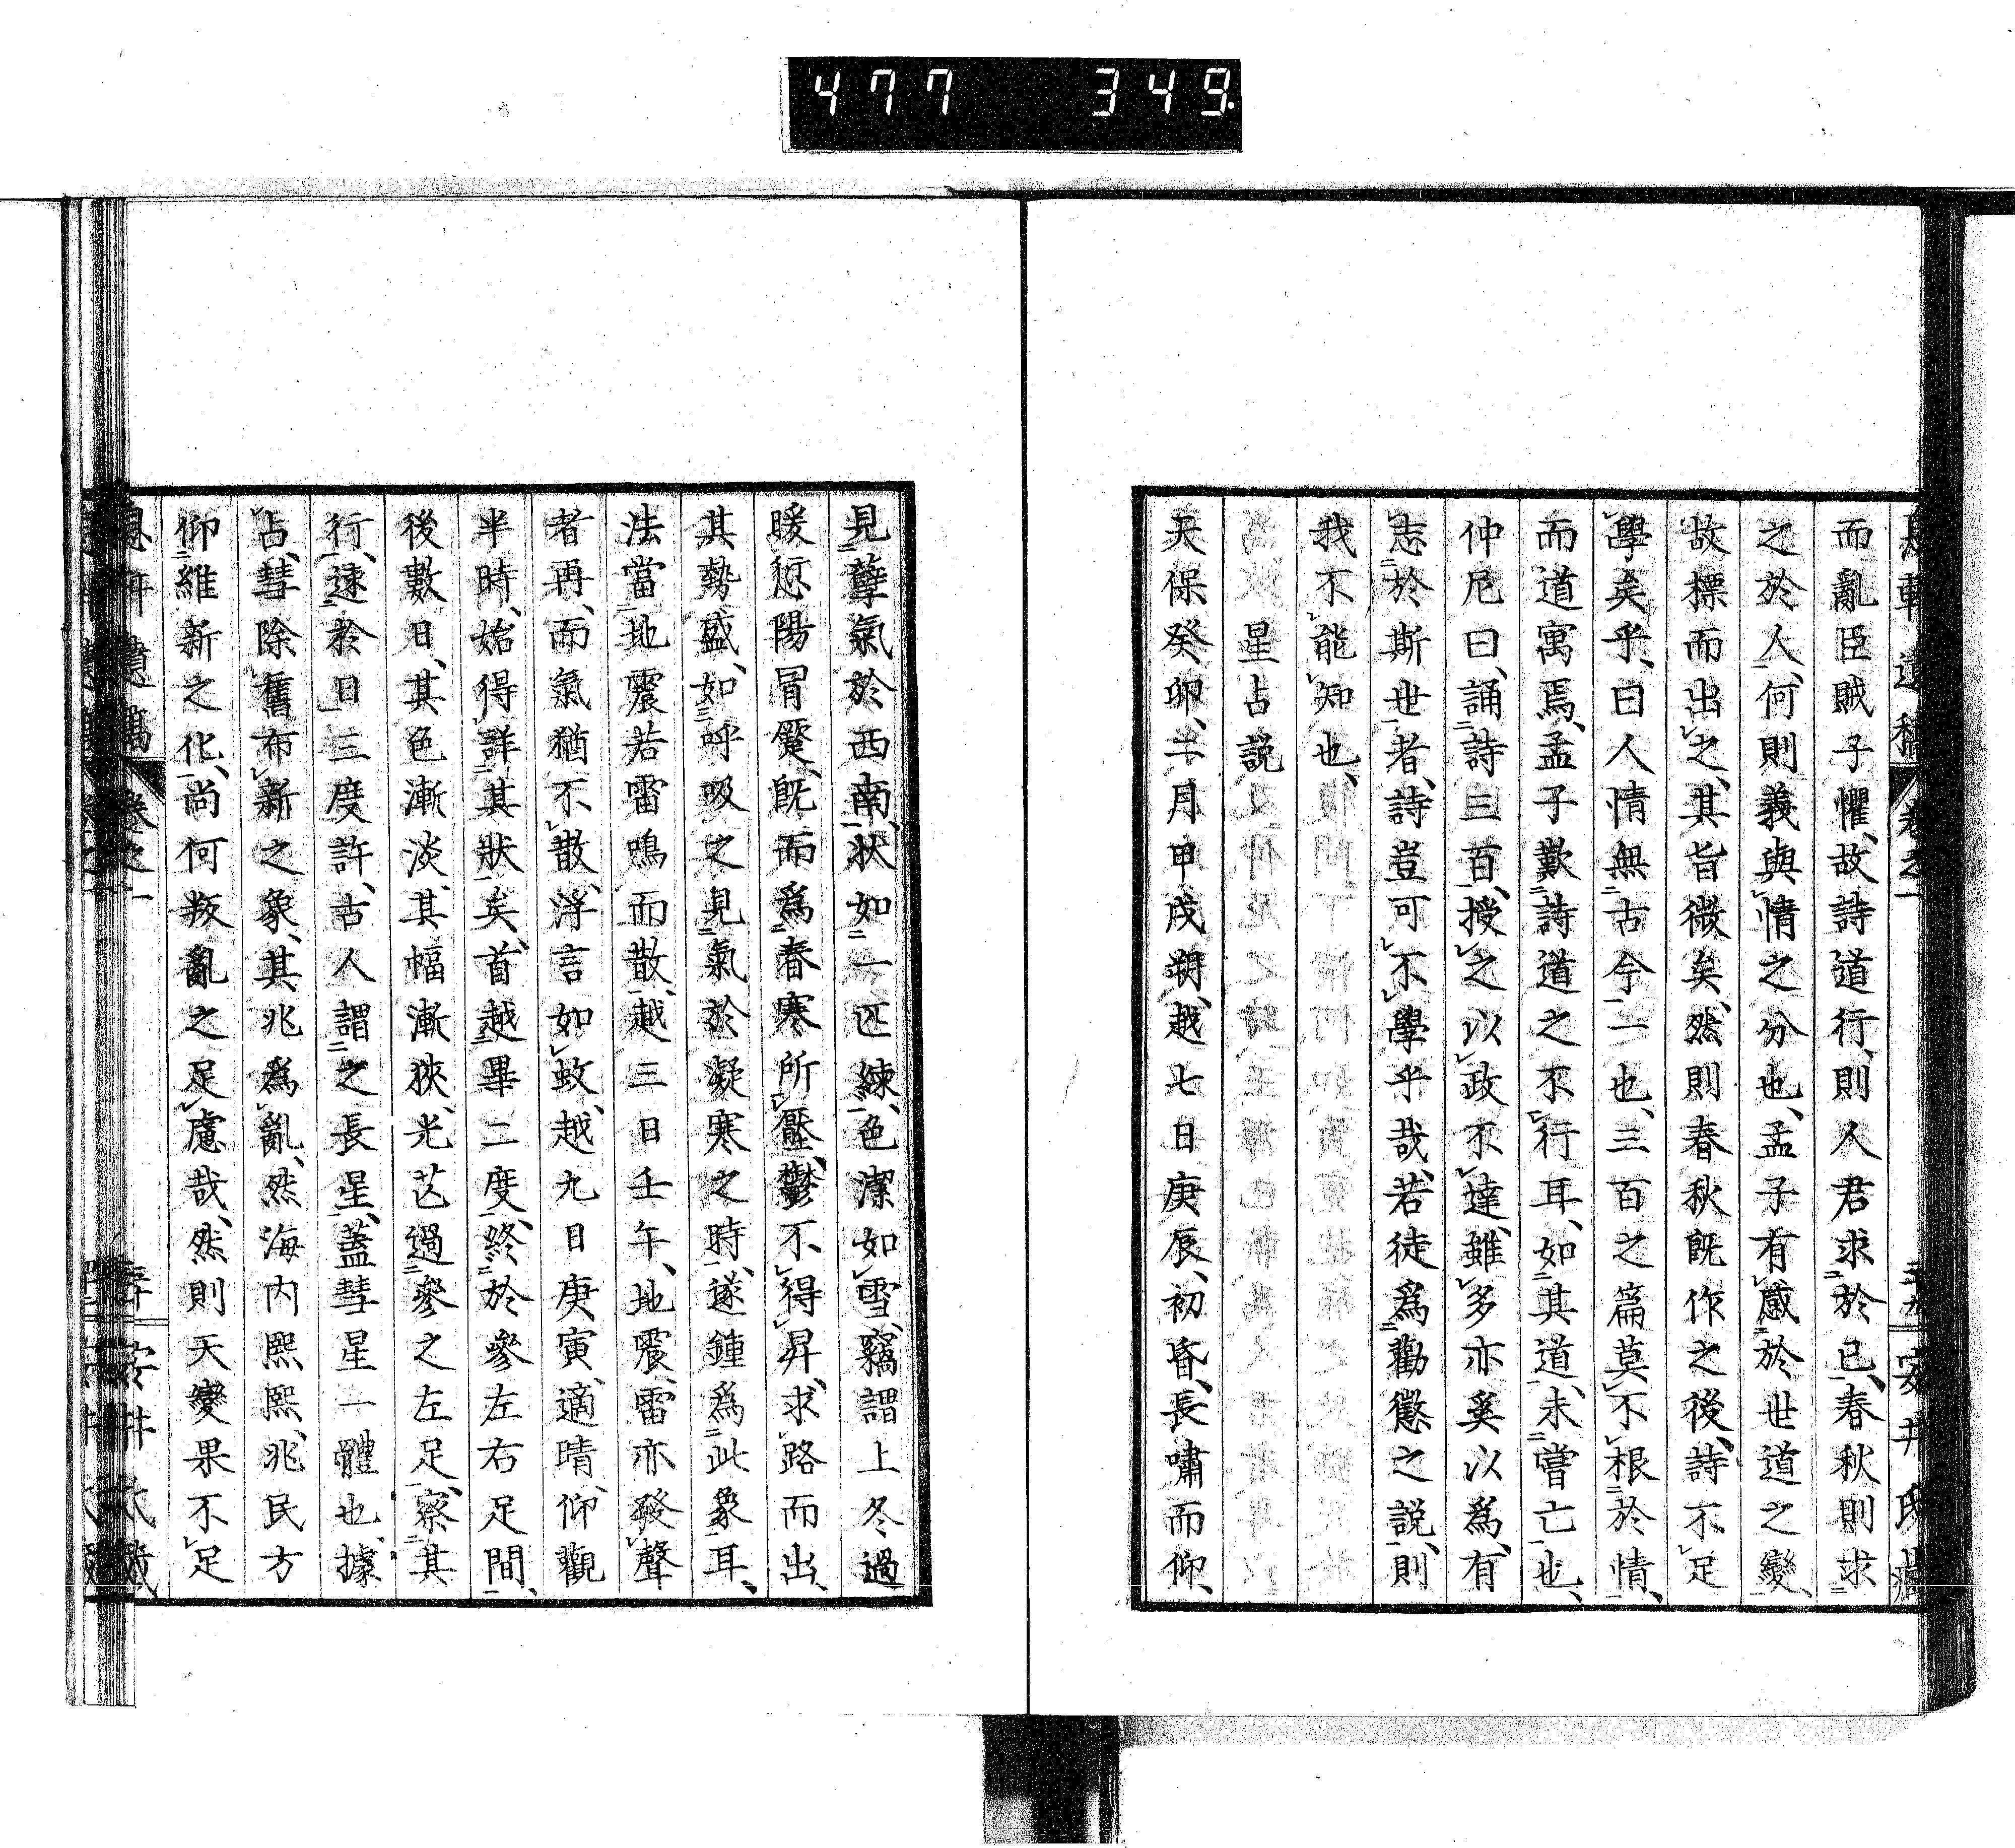 477 349
而亂臣賊子懼、故詩道行、則人君求於已、春秋則求
之於人、何則義與情之分也、孟子有感於世道之變、
故標而出之、其旨微矣、然則春秋既作之後、詩不足
學矣乎、曰人情無古今一也、三百之篇莫不根於情、
而道寓焉、孟子歎詩道之不行耳、如其道、未嘗亡也、
仲尼曰、誦詩三百、授之以政不達、雖多亦奚以爲、有
志於斯世者、詩豈可不學乎哉、若徒爲勸懲之説、則
我不能知也、
星占説
天保癸卯、二月甲戌朔、越七日庚辰、初昏、長嘯而仰、
見孽氣於西南、状如一匹練、色潔如雪、竊謂上冬過
暖、愆陽冒躔、既而爲春寒所壓、鬱不得昇、求路而出、
其勢盛、如呼吸之見氣於凝寒之時、遂鍾爲此象耳、
法當地震若雷鳴而散、越三日壬午、地震、雷亦發聲
者再、而氣猶不散、浮言如蚊、越九日庚寅、適晴、仰觀
半時、始得詳其狀矣、首越畢二度、終於參左右足間、
後數日、其色漸淡、其幅漸狹、光芒過參之左足、察其
行、速於日三度許、古人謂之長星、蓋彗星一體也、據
占、彗除舊布新之象、其兆爲亂、然海内熙熙、兆民方
仰維新之化、尚何叛亂之足慮哉、然則天變果不足